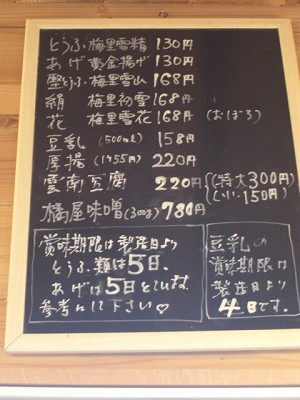 とうふ 梅里雪精 130円
あげ 黄金揚げ 130円
堅とうふ 梅里雪山 168円
絹 梅里初雪 168円
花 梅里雪花 168円 (おぼろ)
豆乳 (500ml) 158円
厚揚 (1ケ55円) 220円
雲南豆腐 220円 (特大300円)
(小 150円)
橘屋味噌 (300g) 780円
賞味期限は製造日より
とうふ類は5日、
あげは5日としています。
参考にして下さい♡
豆乳の
賞味期限は
製造日より
4日です。